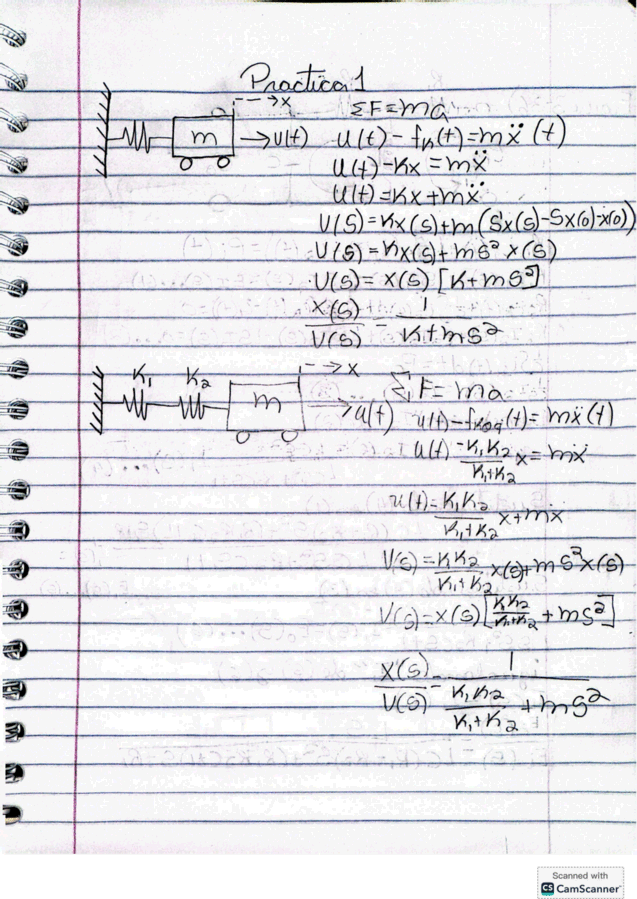 Practica 1
--->x
ΣF=ma
m
→u(t)
u(t) - fk(t) = mẍ (t)
u(t) - Kx = mẍ
u(t) = Kx + mẍ
U(S) = Kx(s) + m(S²x(s) - Sx(0) - ẋ(0))
U(s) = Kx(s) + ms² x(s)
U(s) = x(s) [K + ms²]
X(s)/U(s) = 1/(K + ms²)
K₁ K₂
--->x
m
→u(t)
Σ F = ma
u(t) - fkeq(t) = mẍ (t)
u(t) - K₁K₂/(K₁+K₂) x = mẍ
u(t) = K₁K₂/(K₁+K₂) x + mẍ
U(s) = K₁K₂/(K₁+K₂) x(s) + ms²x(s)
U(s) = x(s) [K₁K₂/(K₁+K₂) + ms²]
X(s)/U(s) = 1/(K₁K₂/(K₁+K₂) + ms²)
Scanned with
CS CamScanner